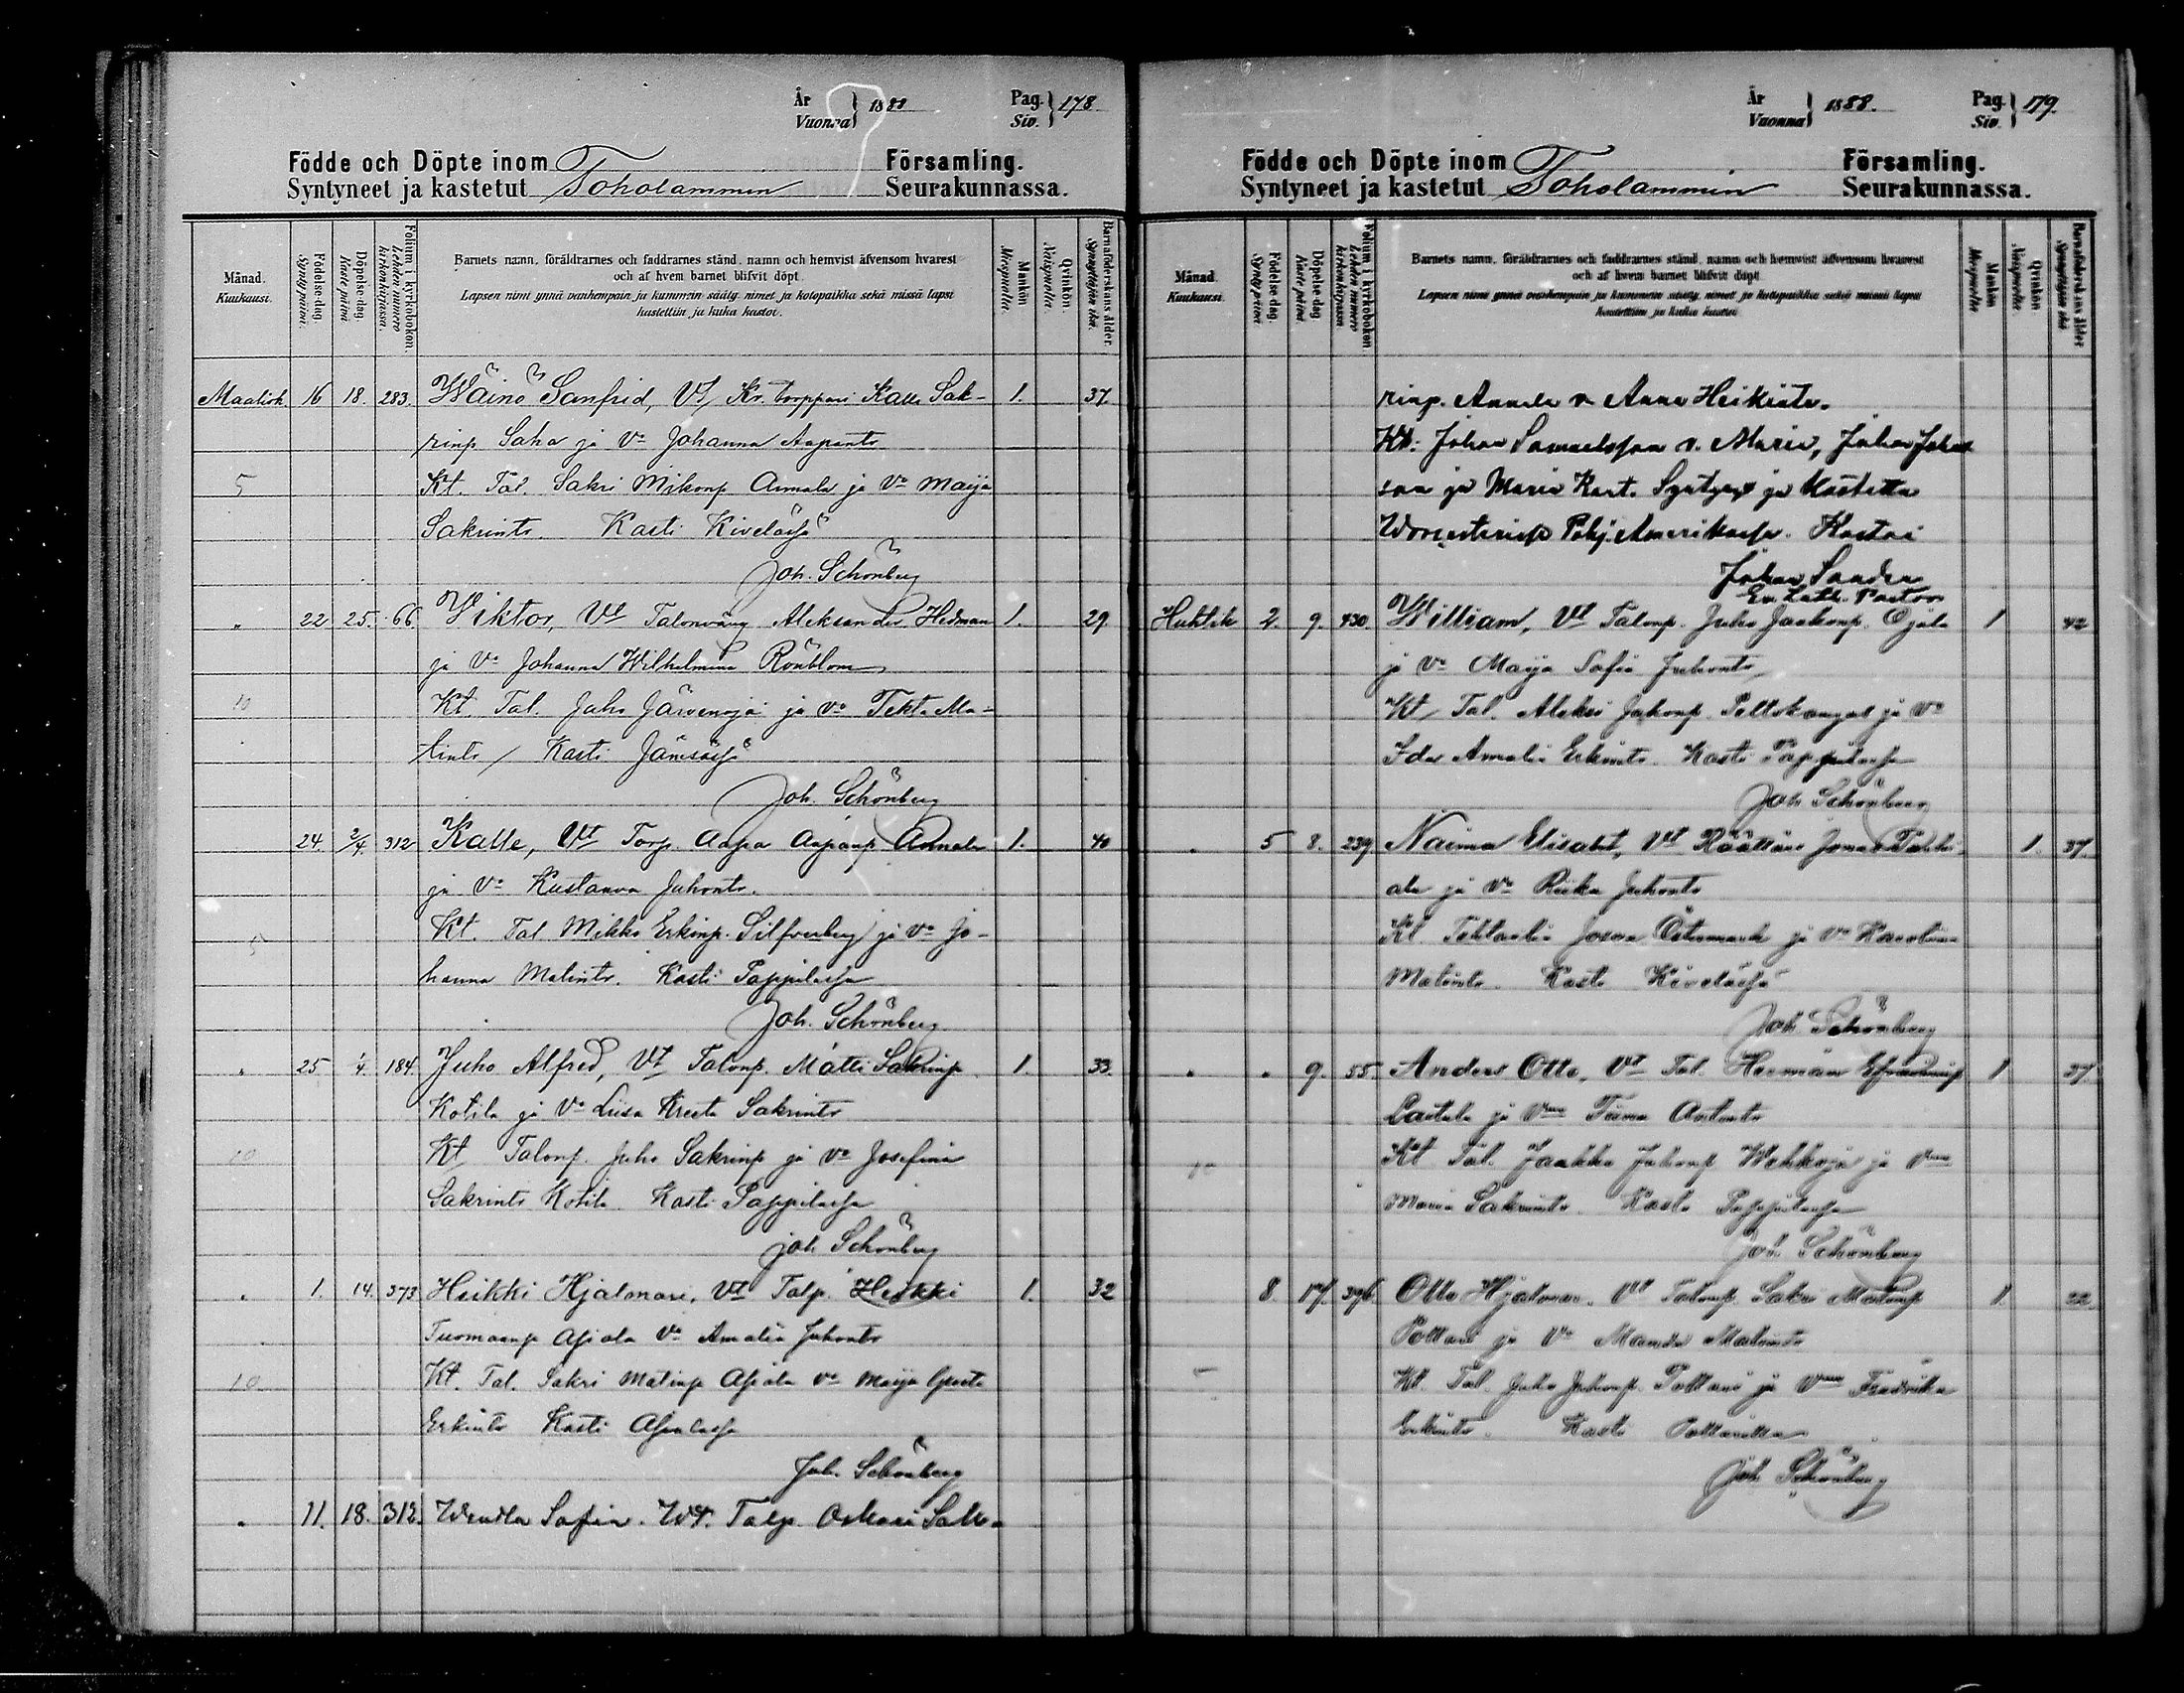 År
Vuonna } 1888 Pag.
Siv. } 178
Födde och Döpte inom Församling.
Syntyneet ja kastetut Toholammin Seurakunnassa.
Månad.
Kuukausi.
Födelse-dag.
Syntypäivä.
Döpelse-dag.
Kaste-päivä
Folium i kyrkoboken.
Lehden numero kirkonkirjassa.
Barnets namn, föräldrarnes och faddrarnes stånd, namn och hemvist äfvensom hvarest
och af hvem barnet blifvit döpt.
Lapsen nimi ynnä vanhempain ja kummein sääty, nimet ja kotopaikka sekä missä lapsi
kastettiin ja kuka kastoi.
Mankön.
Miespuolia.
Qvinkön.
Naispuolia.
Barnaföderskans ålder.
Synnyttäjän ikä.
Maalisk. 16 18. 283. Wäinö Sanfrid, Vt Kr. torppari Kalle Sak- 1. 37
rinp Saha ja Vo Johanna Aapants
5 Kt. Tal. Sakri Mikonp Annala ja Vo Maija
Sakrints. Kasti Kiveläsä
Joh. Schönberg
" 22 25. 66. Viktor, Vt Talonväng Aleksander Hedman 1. 29
ja Vo Johanna Wilhelmina Rönblom
10 Kt. Tal. Juho Järvenoja ja Vo Tekla Ma-
tints Kasti Jämsässä
Joh. Schönberg
24. 2/4. 312 Kalle, Vt Torp. Aapa Aapanp Annala 1. 40
ja Vo Kustaava Juhonts.
5 Kt. Tal Mikko Erkinp. Silfverberg ja Vo Jo-
hanna Matints. Kasti Pappilassa
Joh. Schönberg
" 25 1/4. 184. Juho Alfred, Vt Talonp. Matti Sakrinp 1. 33.
Kotila ja Vo Liisa Kreeta Sakrints
10 Kt Talonp. Juho Sakrinp ja Vo Josefina
Sakrints Kotila. Kasti Pappilassa
Joh Schönberg
" 1. 14. 373 Heikki Hjalmari, Vt Talp. Heikki 1. 32
Tuomaanp Asiala Vo Amalia Juhonts
10 Kt. Tal. Sakri Matinp Asiala Vo Maija Greeta
Erkints Kasti Asialassa
Joh. Schönberg
" 11. 18. 312. Wendla Sofia. Wt. Talp. Oskari Sak-
År
Vuonna } 1888. Pag.
Siv. } 179.
Födde och Döpte inom Församling.
Syntyneet ja kastetut Toholammin Seurakunnassa.
Månad
Kuukausi
Födelse-dag.
Syntypäivä
Döpelse-dag.
Kaste-päivä.
Folium i kyrkoboken
Lehden numero kirkonkirjassa
Barnets namn, föräldrarnes och faddrarnes stånd, namn och hemvist äfvensom hvarest
och af hvem barnet blifvit döpt
Lapsen nimi ynnä vanhempain ja kummein sääty, nimet ja kotopaikka sekä missä lapsi
kastettiin ja kuka kastoi
Mankön
Miespuolia
Qvinkön
Naispuolia
Barnaföderskans ålder
Synnyttäjän ikä
rinp. Annala v. Anna Heikints.
Kt: Johan Samuelsson v. Maria, Juhan Johans
son ja Maria Kart. Syntynyt ja kastettu
Worcesterissa Pohj. Amerikassa. Kastoi
Johan Sander
Ev. Luth. Pastor
Huhtik 2. 9. 430 William, Vt Talonp. Juho Jaakonp. Ojala 1 42
ja Vo Maija Sofia Juhonts
Kt Tal. Aleksi Juhonp. Peltokangas ja Vo
Ida Amalia Erkints. Kasti Pappilassa
Joh Schönberg
" 5 8. 239 Naima Elisabet, Vt Räätäli Jonas 1. 37.
ala ja Vo Riika Juhonts
Kt. Tehtaalia Josva Östermark ja Vo Karolina
Matints. Kasti Kiveläsä
Joh Schönberg
" " 9. 55. Anders Otto, Vt Tal. Herman 1 37.
ja Vmo Antints
Kt Tal. Jaakko Juhonp Wehkoja ja Vmo
Maria Sakrints. Kasti Pappilassa
Joh Schönberg
8. 17. 396. Otto Hjalmar. Vt Talonp Sakri Matinp 1. 22
Pottari ja Vo Manda Matints
Kt. Tal. Juho Juhonp. Pottari ja Vmo Fredrika
Erkints. Kasti
Joh Schönberg